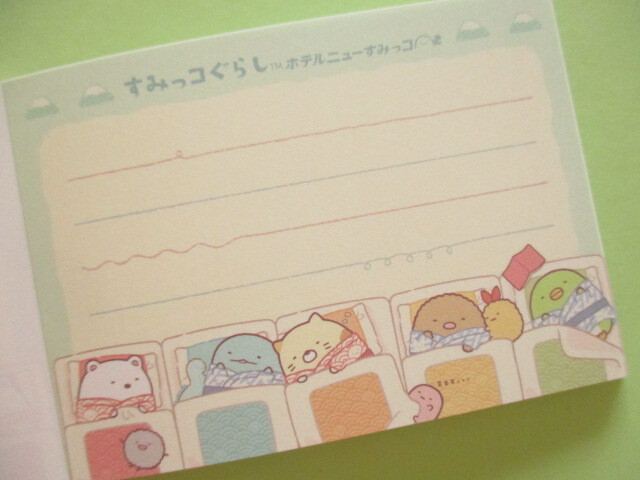 すみっコぐらし™ ホテルニューすみっコ